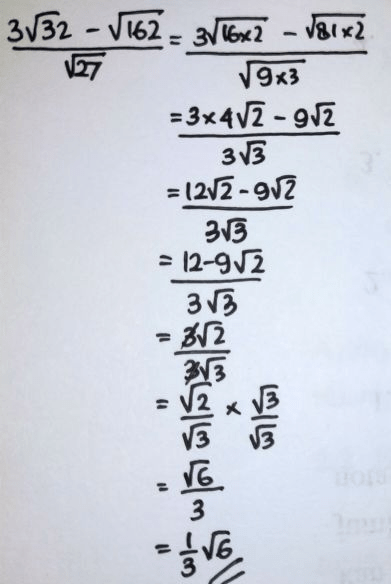 (3√32 - √162)/√27 = (3√(16×2) - √(81×2))/√(9×3)
= (3×4√2 - 9√2)/(3√3)
= (12√2 - 9√2)/(3√3)
= (12-9√2)/(3√3)
= (3√2)/(3√3)
= √2/√3 × √3/√3
= √6/3
= 1/3 √6